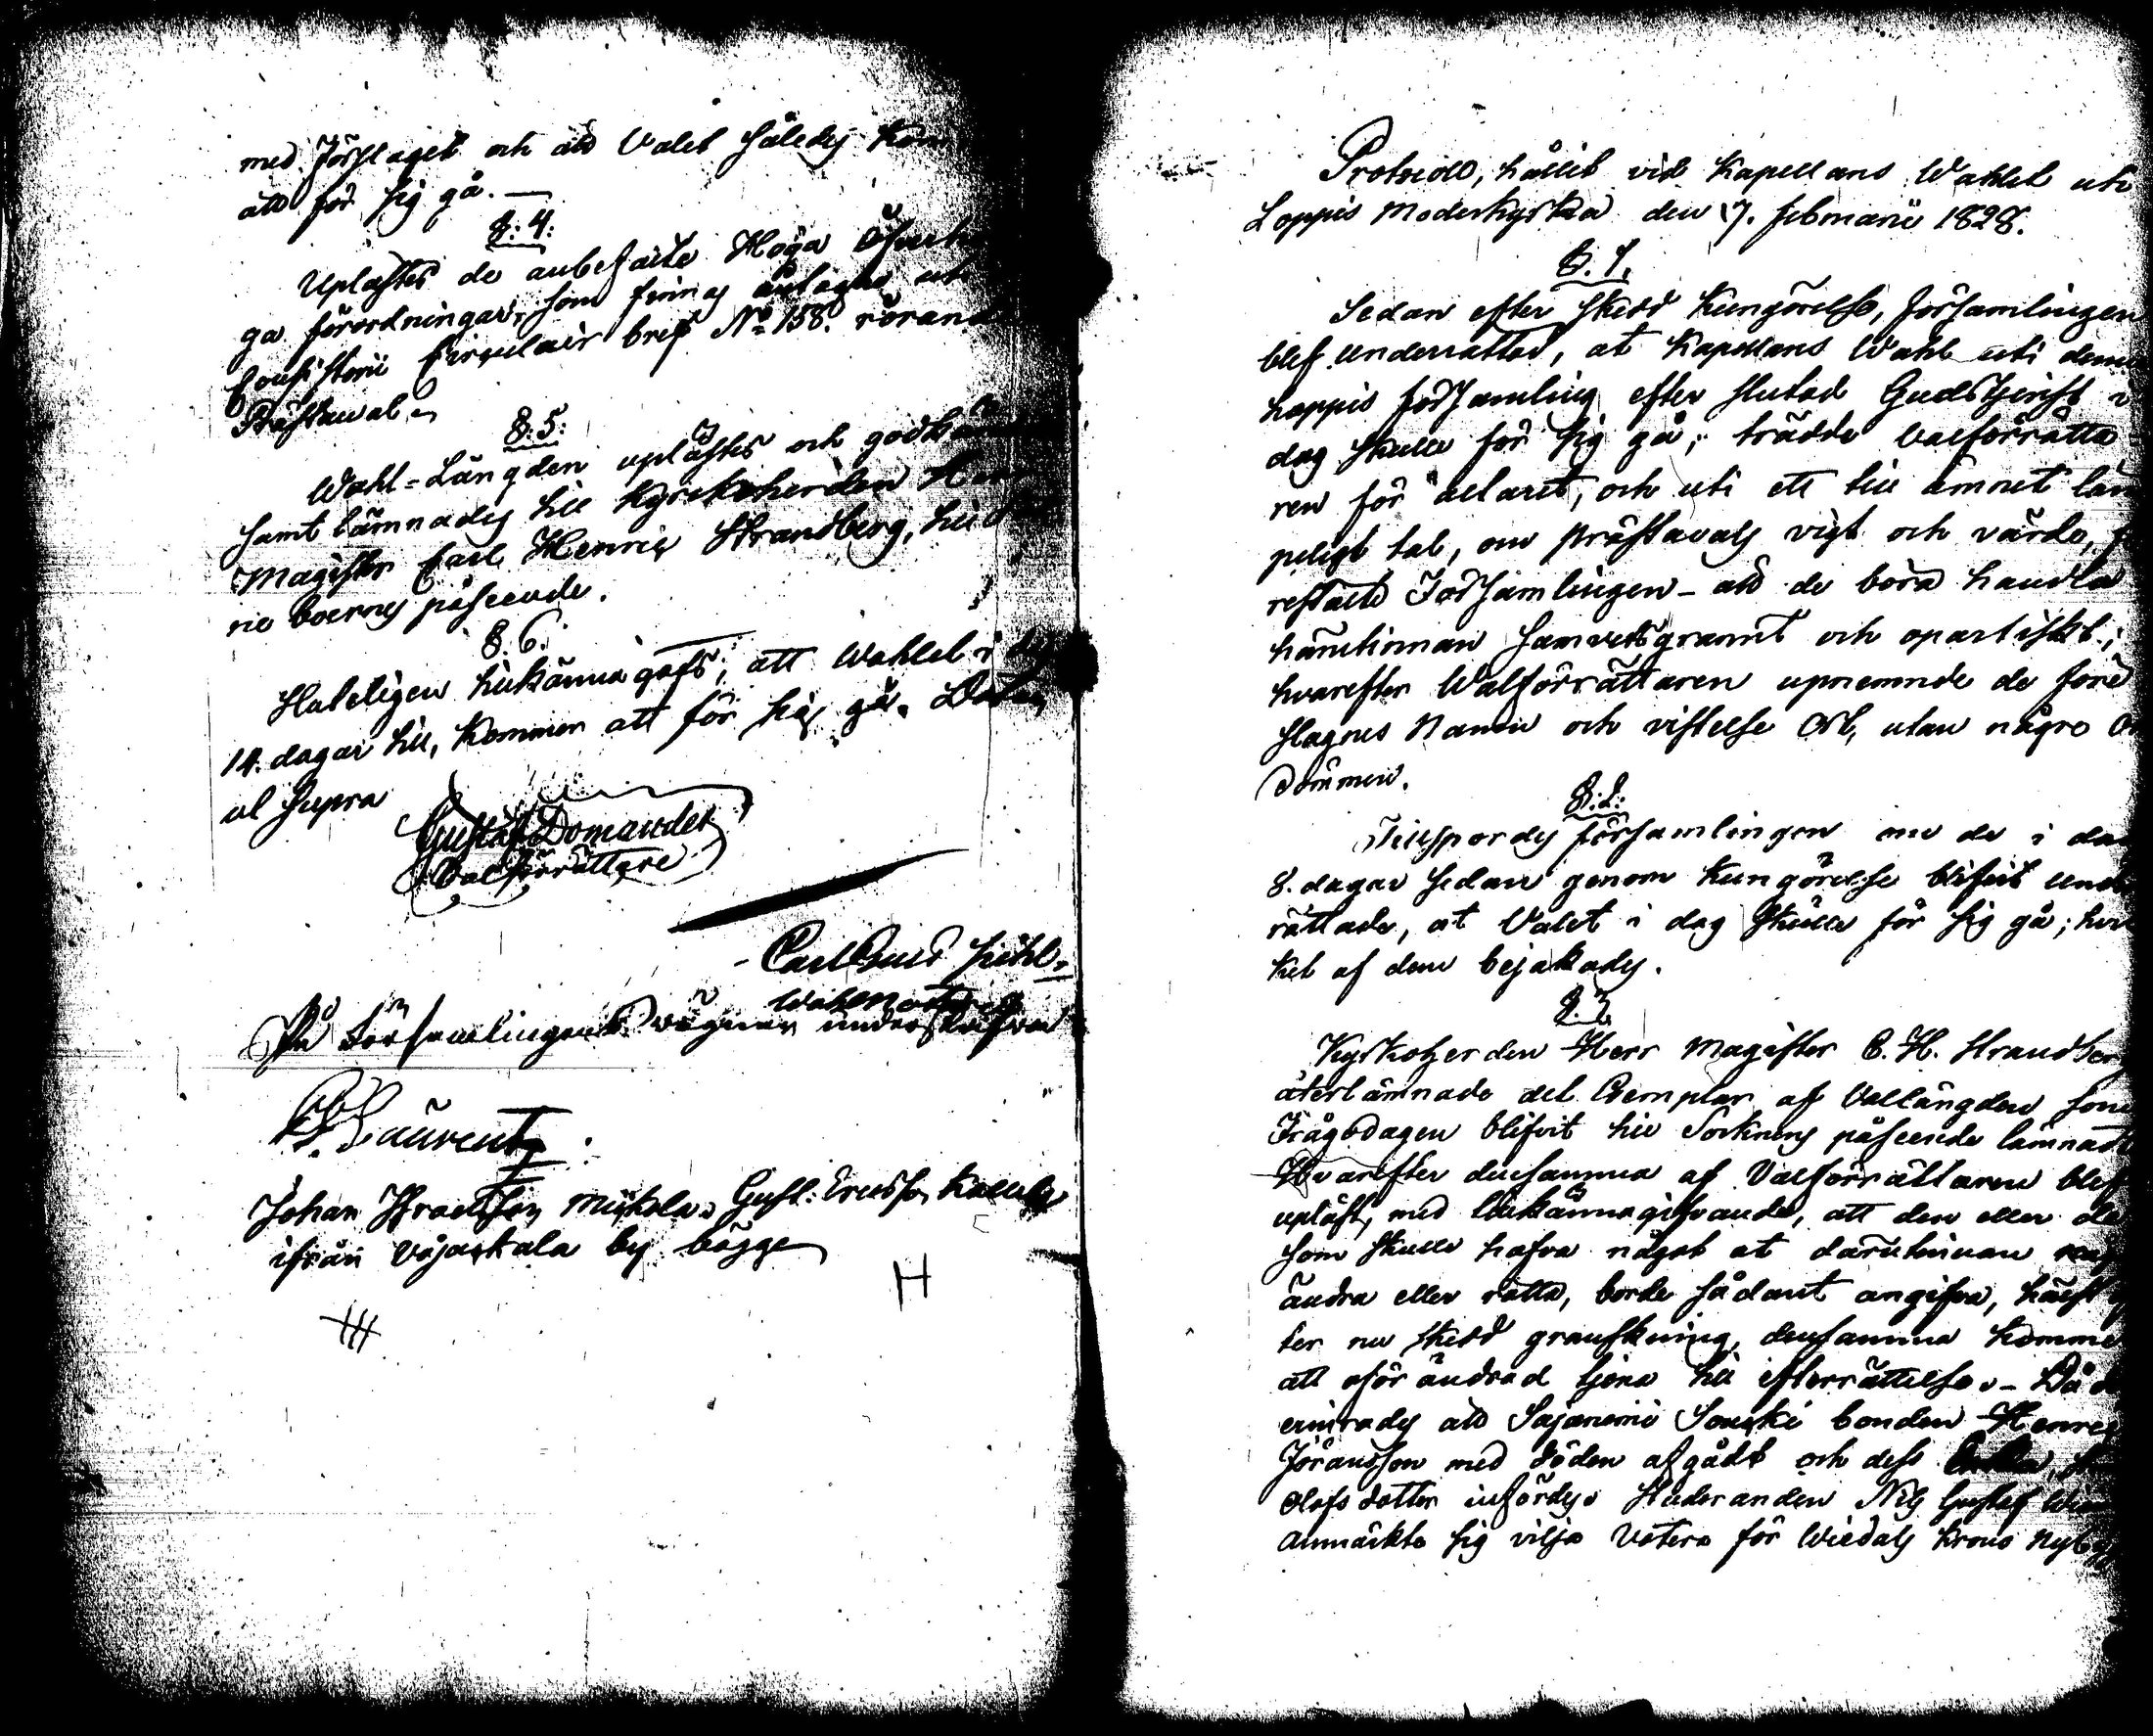 med Förslaget och att Valet således kom
att för sig gå.
§: 4:
Uplästes de anbefalte Höga Öfverh
ga förordningar, som finnas intagne uti
Consistorii Circulair bref No 158. rörand
Prästeval.
§: 5:
Wahl-Längden uplästes och godkän
samt lämnades till Kyrckoherden Herr
Magister Carl Henric Strandberg, till
boernes påseende.
§. 6.
Huteligen tilkänna gafs, att Wahlet i dag
14. dagar till, kommer att för sig gå. Dat
ut supra
Gustaf Domander
Valförrättare
Carl
Wahl Notarie
På Församlingens vägnar underskrifva
Laurentz
Johan Israelsson Mickola. Gust: Ericsson
ifrån Vojackala by bägge
H
Protocoll, hållit vid Kapellans Wahlet uti
Loppis Moderkyrka den 17. Februarii 1828.
§. 1.
Sedan efter skedd kungörelse, Församlingen
blef underrättad, at Kapellans Wahl uti denna
Loppis församling efter slutad Gudstjenst i
dag skulle för sig gå; trädde Valförrätta-
ren för altaret, och uti ett till ämnet läm
peligt tal, om Prästavals vigt och värde, fö
reställte Församlingen - att de böra handla
härutinnan samvetsgrannt och opartiskt;
hvarefter Walförrättaren upnemnde de före
slagnes Namn och vistelse Ort, utan några O
dömmen.
§: 2:
Tillspordes församlingen om de i dag
8. dagar sedan genom kungörelse blifvit under
rättade, at Valet i dag skulle för sig gå; hvil
ket af dem bejakades.
§. 3.
Kyrkoherden Herr Magister C. H. Strandberg
återlämnade det Exemplar af Vallängden som
Frågodagen blifvit till Socknens påseende lämnadt
Hvarefter densamma af Valförrättaren blef
upläst, med tilkännagifvande, att den eller de
som skulle hafva något at därutinnan
ändra eller rätta, borde sådant angifva, hälst ef
ter nu skedd granskning, densamma komme
att oförändrad tjena till efterrättelse. - Då
erinrades att Sajaniemi Souski bonden Henric
Jöransson med döden afgådt och dess Enka,
Olofsdotter infördes. Studeranden Nils Gustaf
Anmärkte sig vilja Votera för Wiedals Krono Nyby